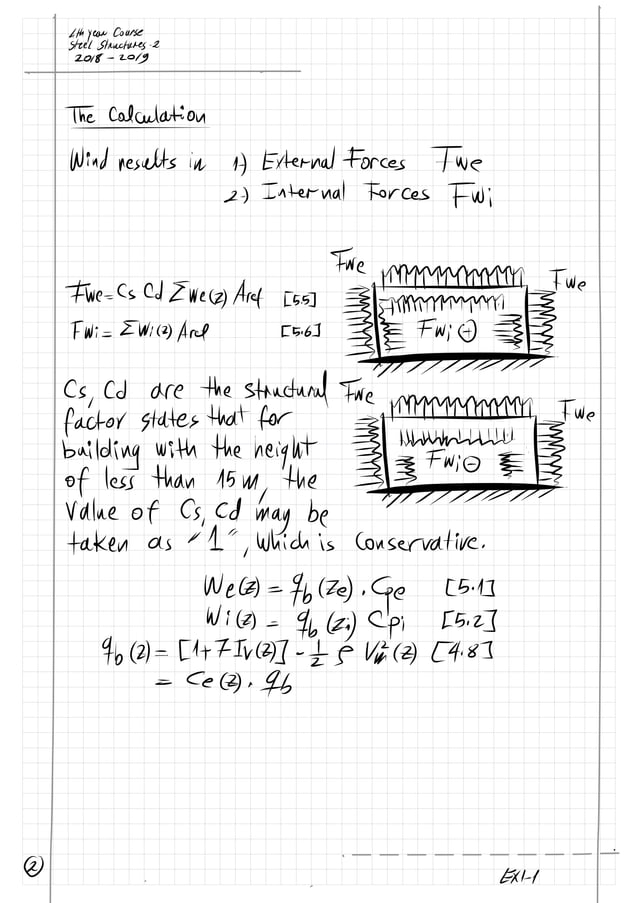 4th year Course
Steel Structures-2
2018-2019
The Calculation
Wind results in 1) External Forces Fwe
2) Internal Forces Fwi
Fwe
Fwe
Fwe = Cs Cd Σwe(z) Aref [5.5]
Fwi = Σwi(z) Aref [5.6]
Fwi ⊕
Cs, Cd are the structural
factor states that for
building with the height
of less than 15 m, the
value of Cs, Cd may be
taken as "1", which is conservative.
Fwe
Fwe
Fwi ⊖
We(z) = qb(ze) . Cpe [5.1]
Wi(z) = qb(zi) Cpi [5.2]
qb(z) = [1+7Iv(z)] - 1/2 ρ Vm²(z) [4.8]
= Ce(z) . qb
2
EX1-1